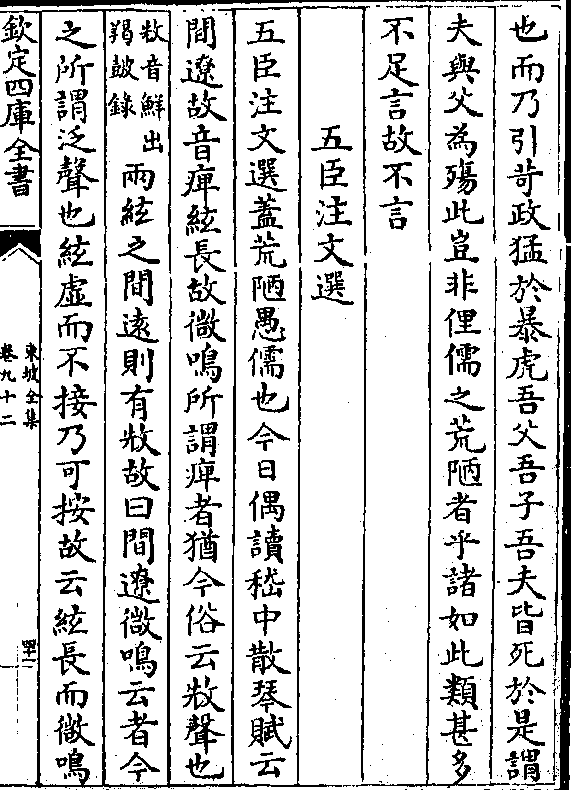 也而乃引苛政猛於暴虎吾父吾子吾夫皆死於是謂
夫與父為殤此豈非俚儒之荒陋者乎諸如此類甚多
不足言故不言
五臣注文選
五臣注文選蓋荒陋愚儒也今日偶讀嵇中散琴賦云
間遼故音痺絃長故徽鳴所謂痺者猶今俗云㪇聲也
㪇音鮮出
羯鼓錄
兩絃之間遠則有㪇故曰間遼徽鳴云者今
之所謂泛聲也絃虛而不接乃可按故云絃長而徽鳴
欽定四庫全書
東坡全集
卷九十二